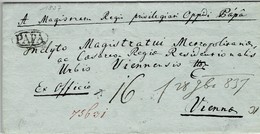 1837
A Magistratu Regii privilegiati Oppidi Pápa
PÁPA
Inclyto Magistratui Metropolitanae
ac Caesareo Regiae Residentionalis
Urbis Viennensis
Ex Officio
16
28 9br 837
Vienna